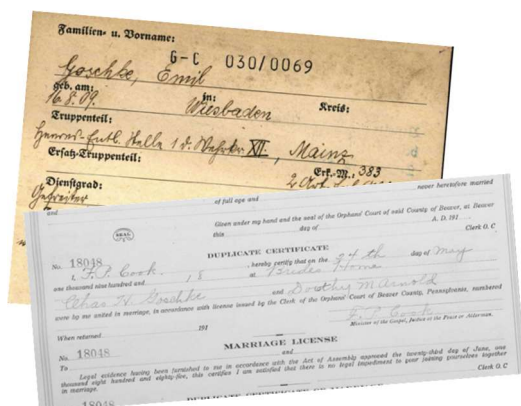 Familien- u. Vorname:
G-C 030/0069
Goschke, Emil
geb. am: in: Kreis:
16.8.09. Wiesbaden
Truppenteil:
Heeres-Entl. Stelle 1 d. Wehrkr. XII, Mainz
Ersatz-Truppenteil:
Erk.-M.: 383
Dienstgrad:
Gefreiter
of full age and never heretofore married
and
Given under my hand and the seal of the Orphans' Court of said County of Beaver, at Beaver
this day of A. D. 191
Clerk O. C
SEAL
DUPLICATE CERTIFICATE
No. 18048
I, F. P. Cook, hereby certify that on the 24th day of May
one thousand nine hundred and 18 at Brides Home
Chas H Goschke and Dorothy M Arnold
were by me united in marriage, in accordance with license issued by the Clerk of the Orphans' Court of Beaver County, Pennsylvania, numbered
F. P. Cook
Minister of the Gospel, Justice of the Peace or Alderman.
When returned 191
MARRIAGE LICENSE
No. 18048
To and
Legal evidence having been furnished to me in accordance with the Act of Assembly approved the twenty-third day of June, one
thousand eight hundred and eighty-five, this certifies I am satisfied that there is no legal impediment to your joining yourselves together
in marriage.
Clerk O. C
18048